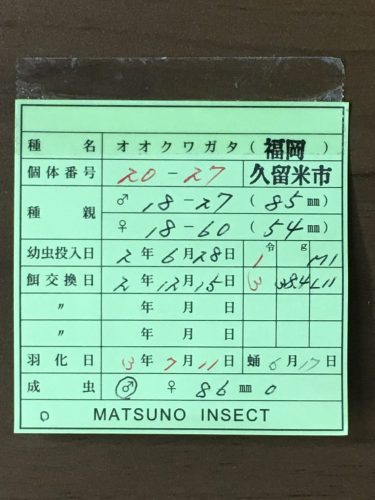 種 名 オオクワガタ (福岡)
個体番号 20-27 久留米市
種 親 ♂ 18-27 (85㎜)
♀ 18-60 (54㎜)
幼虫投入日 2年6月28日 令 1 g M1
餌交換日 2年12月15日 3 38.4 L11
〃 年 月 日
〃 年 月 日
羽化日 3年7月11日 蛹 6月17日
成 虫 ♂ ♀ 86㎜ 0
0 MATSUNO INSECT